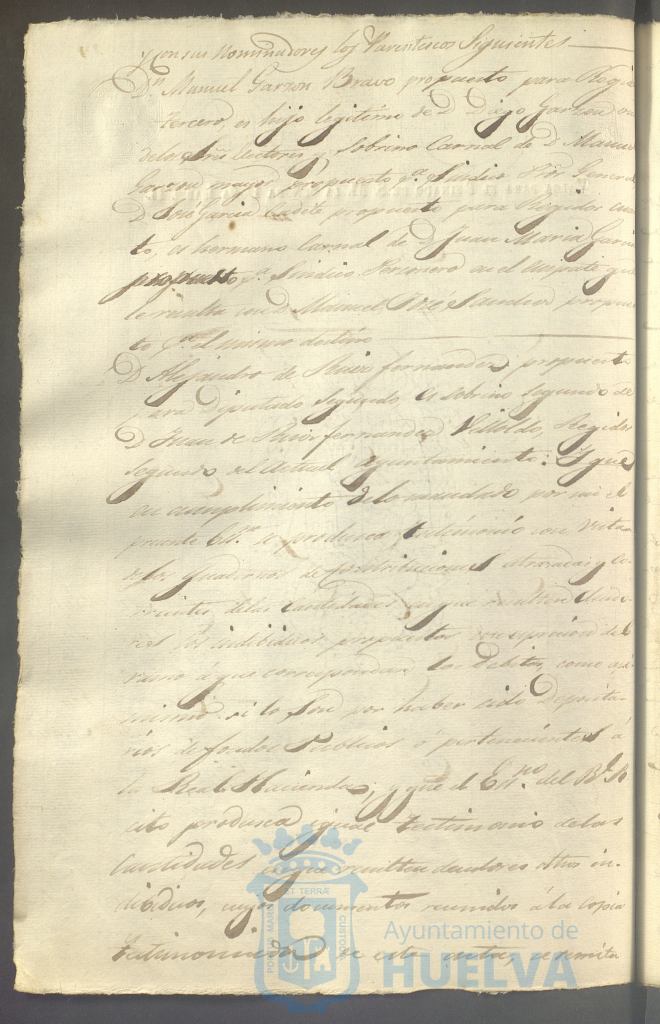 y con sus Nominadores los Parentescos Siguientes
Dn. Manuel Garzon Bravo propuesto para Regidor
tercero, es hijo legitimo de D. Diego Garzon uno
delos Sres. Electores, y Sobrino Carnal de D. Manuel
Garzon mayor propuesto pa. Sindico Pror. General
D. Jose Garcia propuesto para Regidor cuar
to, es hermano Carnal de D. Juan Maria Garcia
propuesto pa. Sindico Personero en el empate que
le resulta con D. Manuel José Sanchez propues
to pa. el mismo destino
D. Alejandro de fernandez propuesto
para Diputado Segundo, es sobrino segundo de
D. Juan de fernandez Regidor
Segundo del actual ayuntamiento: Y que
en cumplimiento delo mandado por mi el
presente se produzca testimonio con vista
delos Quadernos de Contribuciones atrasadas y co
rrientes, delas Cantidades en que resulten deudo
res los individuos propuestos con expresion del
ramo á que correspondan los Debitos, como asi
mismo si lo son por haber sido Deposita
rios de fondos Publicos ó pertenecientes á
la Real Hacienda, y que el Esno. del
cito produzca igual testimonio delas
Cantidades en que resulten deudores otros in-
dividuos, cuyos documentos reunidos á la copia
testimoniada de esta acta, se remita
PORTUS MARIS ET TERRAE CUSTODIA
Ayuntamiento de
HUELVA